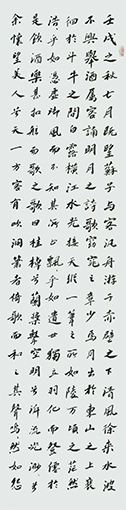 壬戌之秋七月既望蘇子與客汎舟游于赤壁之下清風徐來水波
不興舉酒屬客誦明月之詩歌窈窕之章少焉月出於東山之上裴
徊於斗牛之間白露橫江水光接天縱一葦之所如陵萬頃之茫然
浩乎如憑虛御風而不知其所止飄飄乎如遺世獨立羽化而登僊於
是飲酒樂甚扣舷而歌之歌曰桂棹兮蘭槳擊空明兮泝流光渺渺兮
余懷望美人兮天一方客有吹洞簫者倚歌而和之其聲嗚嗚然如怨